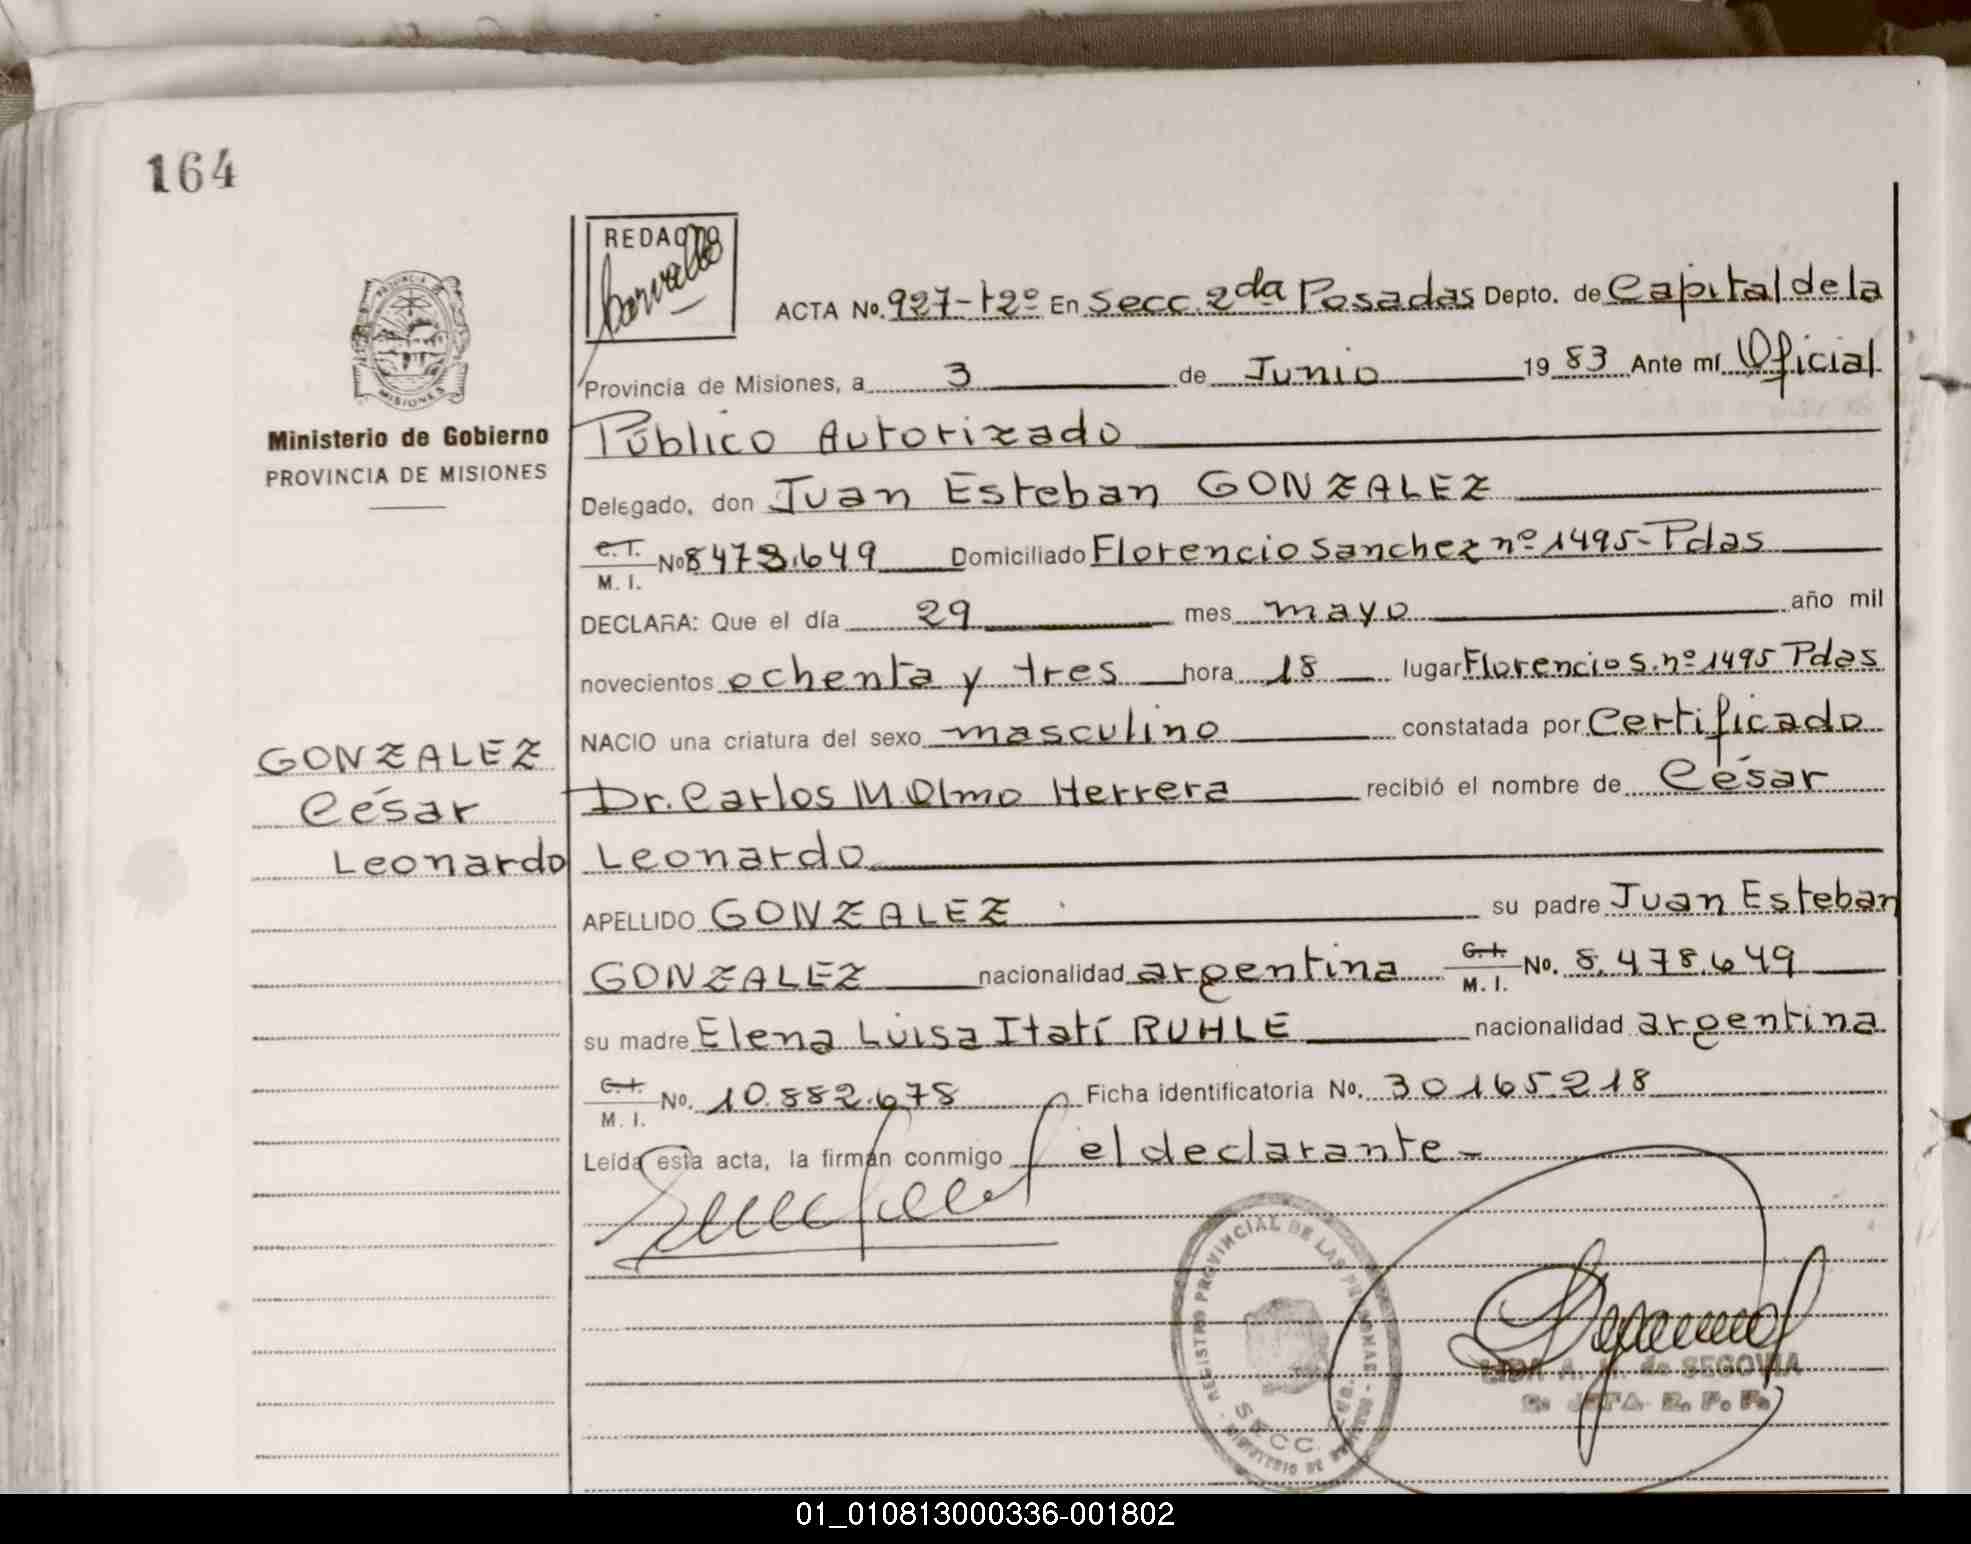 164
REDACTO
PROVINCIA DE
MISIONES
Ministerio de Gobierno
PROVINCIA DE MISIONES
ACTA No. 927-t2º En Secc. 2da Posadas Depto. de Capital de la
Provincia de Misiones, a 3 de Junio 19 83 Ante mí Oficial
Público Autorizado
Delegado, don Juan Esteban GONZALEZ
C.I.
M. I. No 8478.649 Domiciliado Florencio Sanchez nº 1495-Pdas
DECLARA: Que el día 29 mes mayo año mil
novecientos ochenta y tres hora 18 lugar Florencio S. nº 1495 Pdas
NACIO una criatura del sexo masculino constatada por Certificado
Dr. Carlos M Olmo Herrera recibió el nombre de César
Leonardo
APELLIDO GONZALEZ su padre Juan Esteban
GONZALEZ nacionalidad argentina C.I.
M. I. No. 8.478.649
su madre Elena Luisa Itatí RUHLE nacionalidad argentina
C.I.
M. I. No. 10.882.678 Ficha identificatoria No. 30165218
Leída esta acta, la firman conmigo el declarante-
GONZALEZ
César
Leonardo
REGISTRO PROVINCIAL DE LAS PERSONAS
SECC. 2da.
A. de SEGOVIA
JEFA R. P. P.
01_010813000336-001802